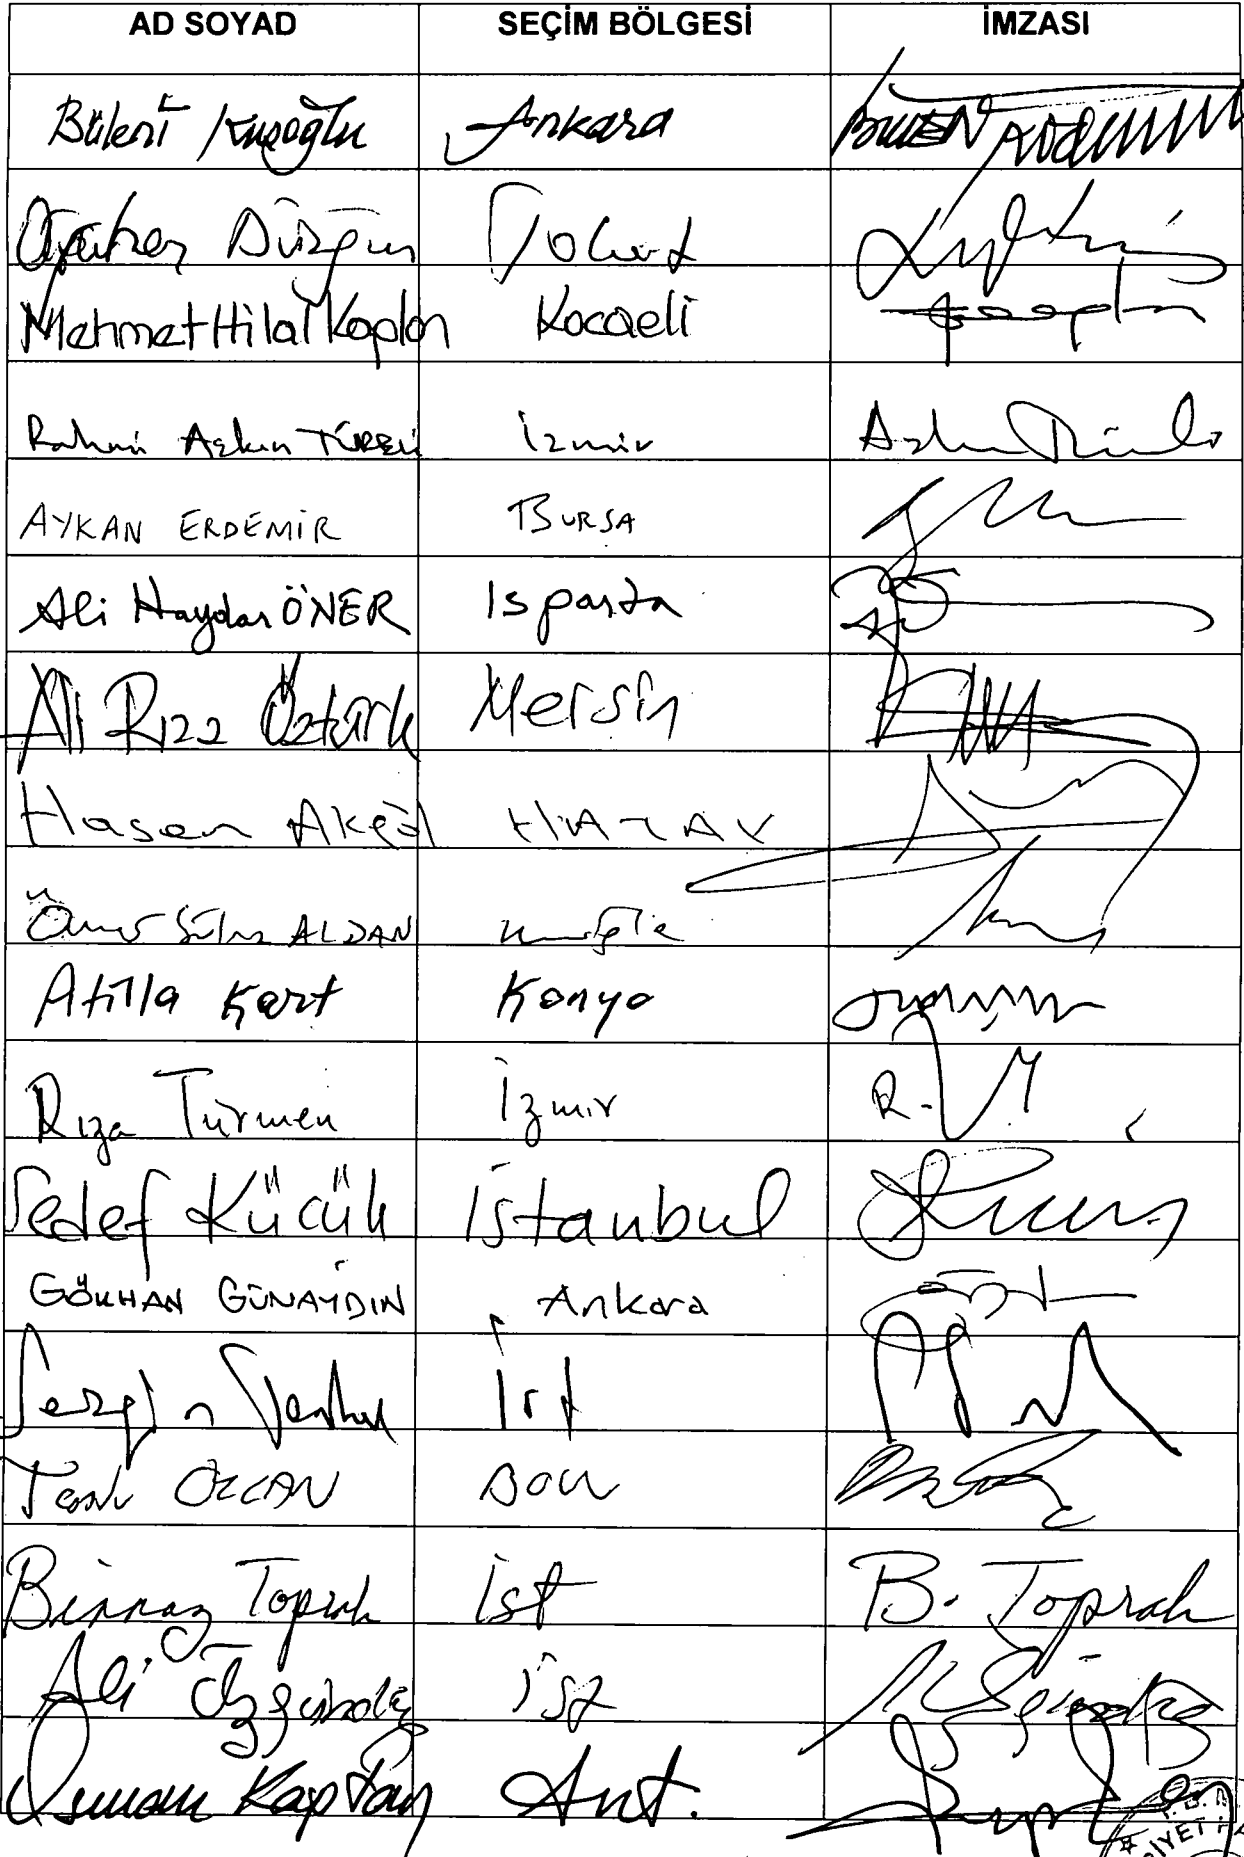 AD SOYAD SEÇİM BÖLGESİ İMZASI
Bülent Kuşoğlu Ankara
Orhan Düzgün Tokat
Mehmet Hilal Kaplan Kocaeli
Rahmi Aşkın TÜRELİ İzmir
AYKAN ERDEMİR BURSA
Ali Haydar ÖNER Isparta
Ali Rıza Öztürk Mersin
Hasan Akgöl HATAY
Ömer Süha ALDAN Muğla
Atilla Kart Konya
Rıza Türmen İzmir
Sedef Küçük İstanbul
GÖKHAN GÜNAYDIN Ankara
İst
Tanju ÖZCAN BOLU
Binnaz Toprak İst B. Toprak
Ali Özgündüz İst
Osman Kaptan Ant.